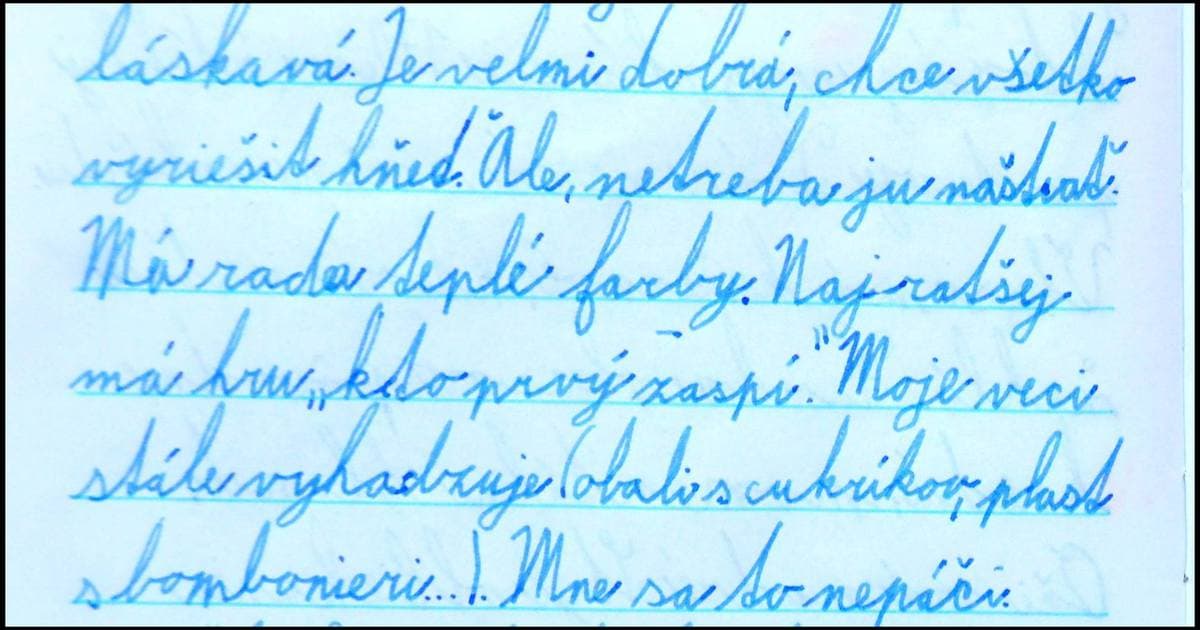 láskavá. Je velmi dobrá, chce všetko
vyriešit hňeď. Ale, netreba ju naštvať.
Má rada teplé farby. Najratšej
má hru „kto prvý zaspí.” Moje veci
stále vyhadzuje (obali s cukríkov, plast
s bombonieri...). Mne sa to nepáči.